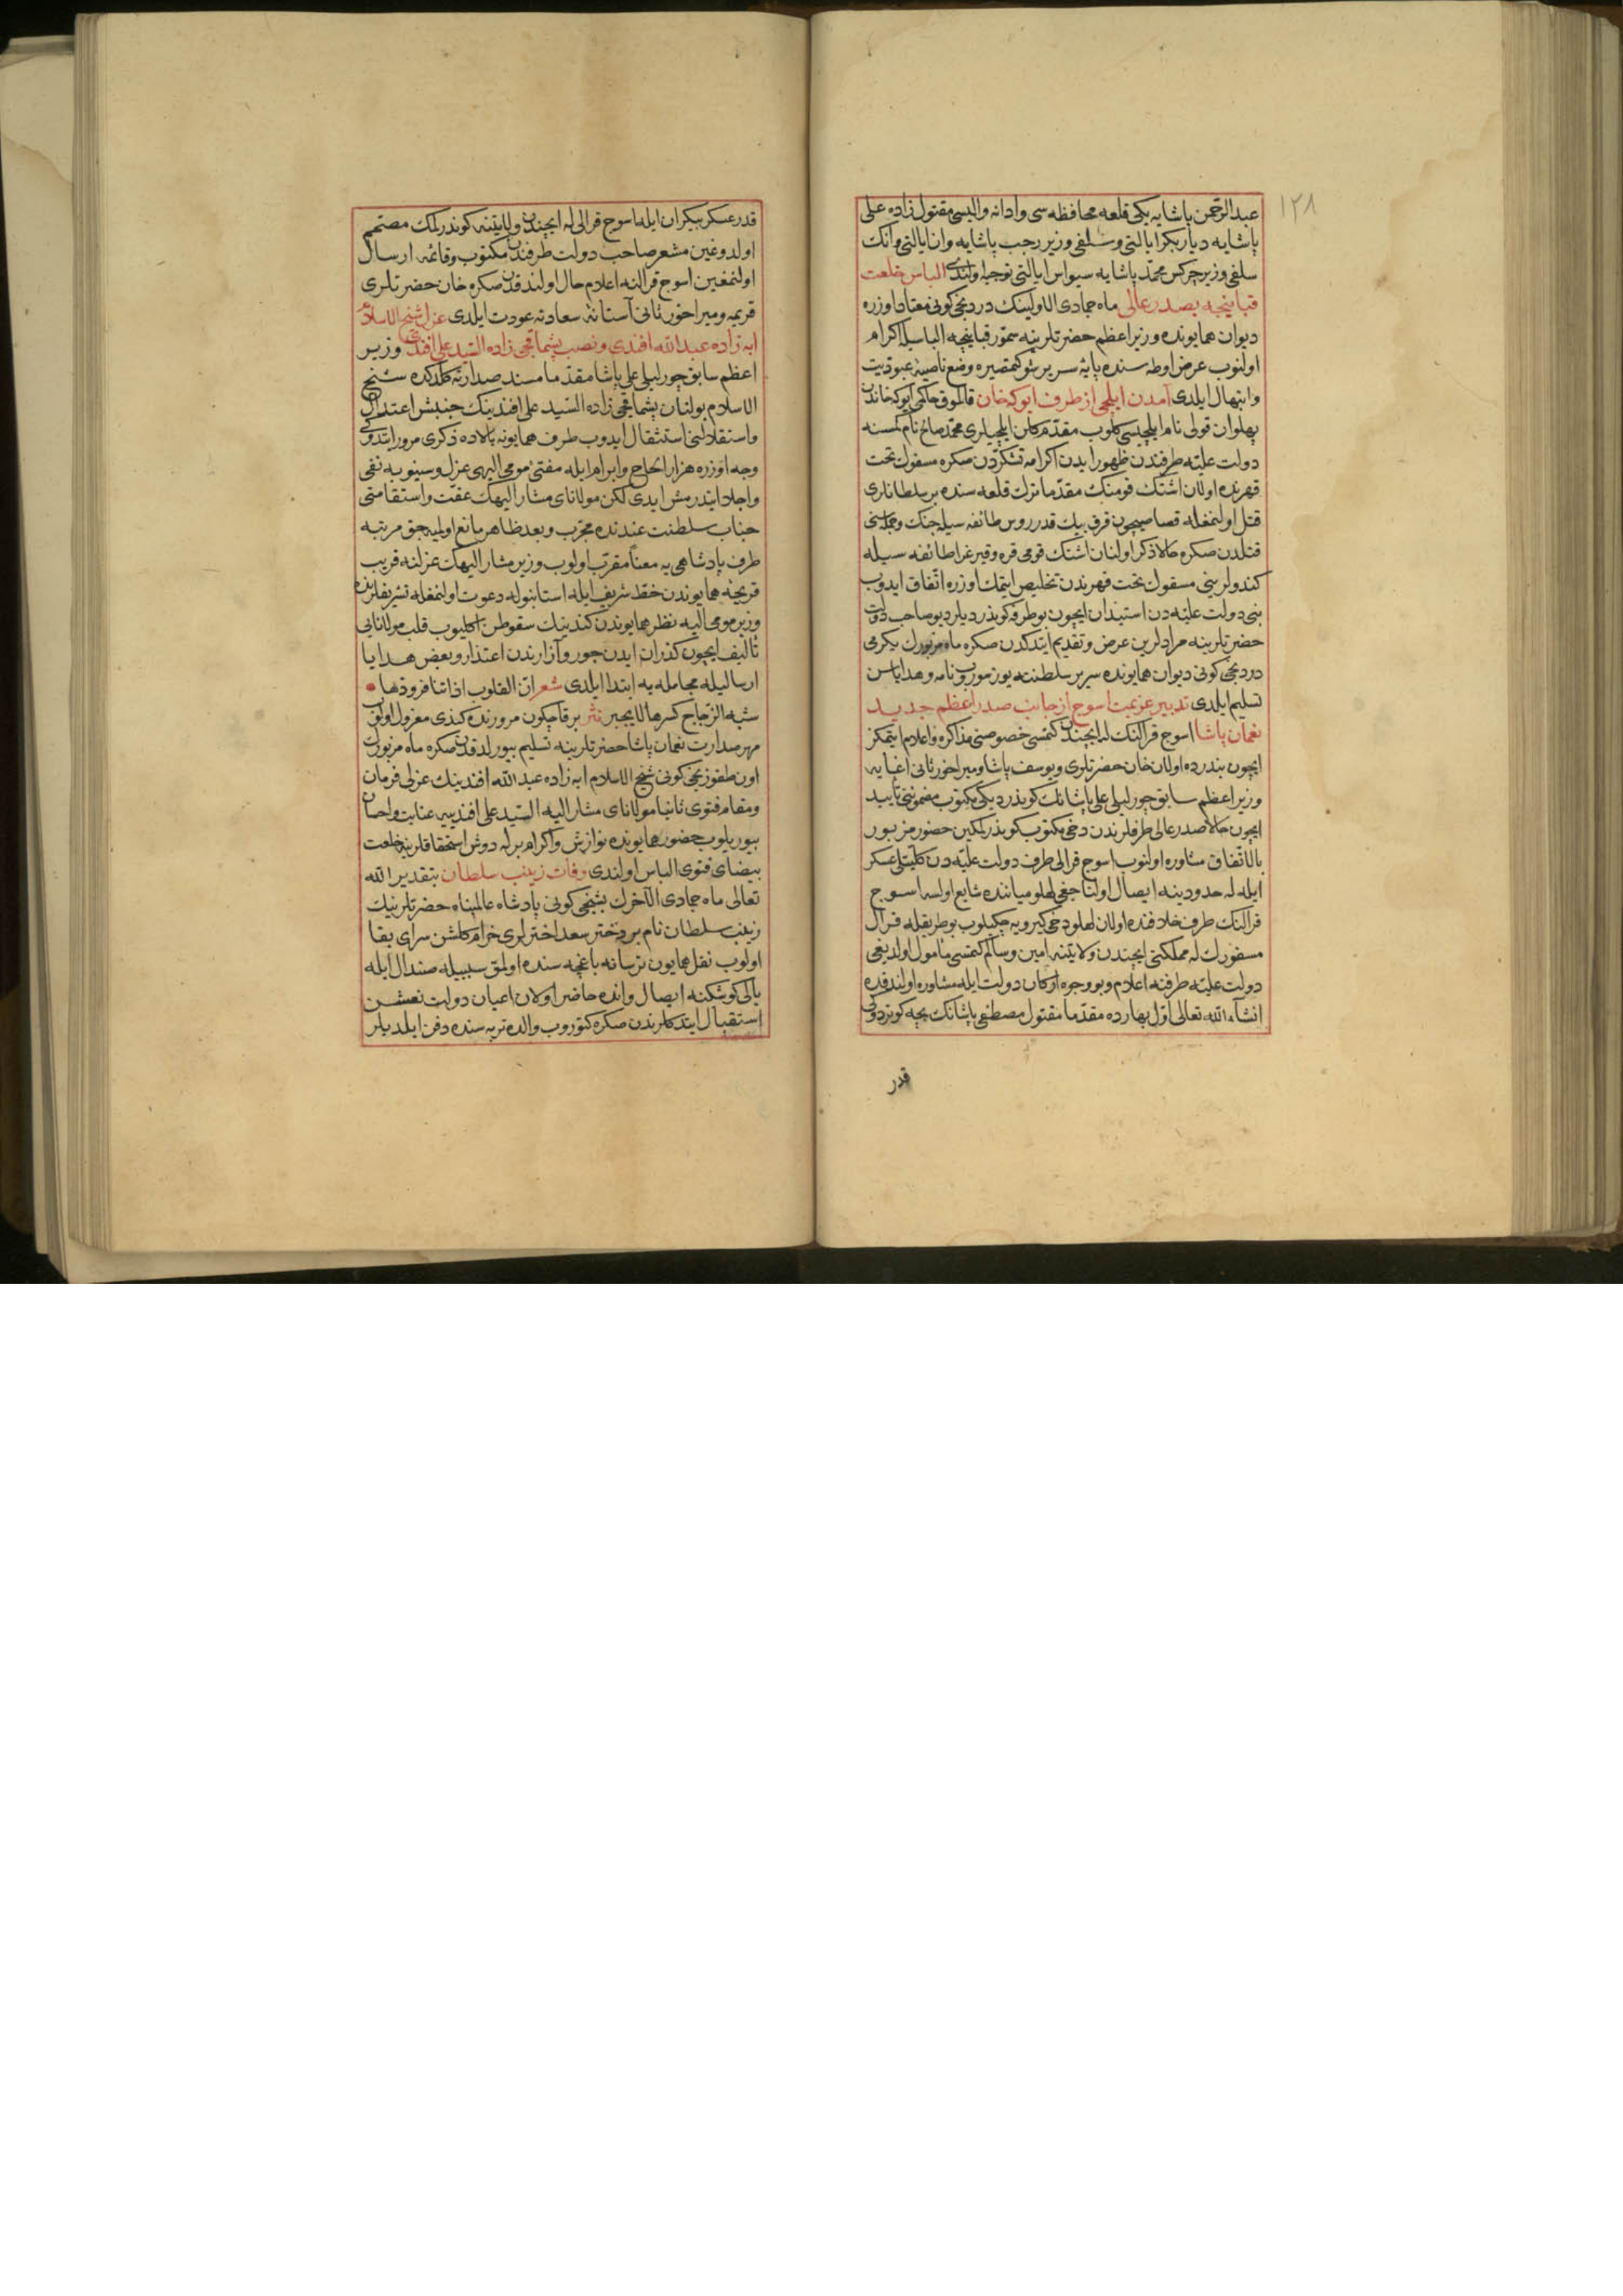 ١٢٨
عبد الرحمن پاشایه یکی قلعه محافظه سی وادانه والیسی مقتول زاده علی
پاشایه دیاربکر ایالتی وسلفی وزیر رجب پاشایه وان ایالتی وانك
سلفی وزیر چرکس محمد پاشایه سیواس ایالتی توجیه اولندی الباس خلعت
قپانیچه بصدر عالی ماه جمادی الاولینك دردنجی کونی معتاد اوزره
دیوان همایونده وزیر اعظم حضرتلرینه سمور قپانیچه الباسیله اکرام
اولنوب عرض اوطه سنده پایهٔ سریر شوکتمصیره وضع ناصیهٔ عبودیت
وابتهال ایلدی آمدن ایلچی از طرف ایوکه خان قالموق حاکمی ایوکه خاندن
پهلوان قولی نام ایلچیسی کلوب مقدم کلن ایلچیلری محمد صالح نام کمسنه
دولت علیه طرفندن ظهور ایدن اکرامه تشکردن صکره مسقوك تحت
قهرنده اولان اشتك قومنك مقدما ترك قلعه سنده بر سلطانلری
قتل اولنمغله قصاصیچون قرق بیك قدر روس طائفه سیله جنك وجمله سنی
قتلدن صکره حالا ذکر اولنان اشتك قومی قره وقیرغز طائفه سیله
کندولرینی مسقوك تحت قهرندن تخلیص ایتمك اوزره اتفاق ایدوب
بنی دولت علیه دن استیذان ایچون بو طرفه کوندردیلر دیو صاحب دولت
حضرتلرینه مرادلرین عرض وتقدیم ایتدکدن صکره ماه مزبورك یکرمی
دردنجی کونی دیوان همایونده سریر سلطنته یوز سوروب نامه وهدایاسن
تسلیم ایلدی تدبیر عزیمت اسوج از جانب صدر اعظم جدید
نعمان پاشا اسوج قرالنك له ایچندن کتمسی خصوصنی مذاکره واعلام ایتمکز
ایچون بندرده اولان خان حضرتلری ویوسف پاشا ومیراخور ثانی اغایه
وزیر اعظم سابق چورلیلی علی پاشانك کوندردیکی مکتوب مضموننی تأیید
ایچون حالا صدر عالی طرفلرندن دخی مکتوب کوندرلمکین حضور مزبور
بالاتفاق مشاوره اولنوب اسوج قرالی طرف دولت علیه دن کلیتلی عسکر
ایله له حدودینه ایصال اولناجغی لهلو میاننده شایع اولسه اسوج
قرالنك طرف خلافنده اولان لهلو دخی کیرویه چکیلوب بو طریقله قرال
مسفورك له مملکتی ایچندن ولایتنه امین وسالم کتمسی مأمول اولدیغی
دولت علیه طرفنه اعلام وبو وجوه ارکان دولت ایله مشاوره اولندقده
انشاء الله تعالی اول بهارده مقدما مقتول مصطفی پاشانك بچه کوتردوکی
قدر
قدر عسکر بیکران ایله اسوج قرالی له ایچندن ولایتنه کوندرلمك مصمم
اولدوغین مشعر صاحب دولت طرفندن مکتوب وقائمه ارسال
اولنمغین اسوج قرالنه اعلام حال اولندقدن صکره خان حضرتلری
قریمه ومیراخور ثانی آستانهٔ سعادته عودت ایلدی عزل شیخ الاسلام
ابه زاده عبد الله افندی ونصب پشماقجی زاده السید علی افندی وزیر
اعظم سابق چورلیلی علی پاشا مقدما مسند صدارته کلدکده شیخ
الاسلام بولنان پشماقجی زاده السید علی افندینك جنبش اعتدال
واستقلالنی استثقال ایدوب طرف همایونه بالاده ذکری مرور ایتدوکی
وجه اوزره هزار الحاح وابرام ایله مفتیٔ مومی الیهی عزل وسینوبه نفی
واجلا ایتدرمش ایدی لکن مولانای مشار الیهك عفت واستقامتی
جناب سلطنت عندنده مجرب وبعد ظاهر مانع اولمیه جق مرتبه
طرف پادشاهی یه معناً مقرب اولوب وزیر مشار الیهك عزلنه قریب
قریحهٔ همایوندن خط شریف ایله استانبوله دعوت اولنمغله تشریفلرنده
وزیر مومی الیه نظر همایوندن کندینك سقوطن اکلیوب قلب مولانایی
تألیف ایچون کذران ایدن جور وآزارندن اعتذار وبعض هدایا
ارسالیله مجامله یه ابتدا ایلدی شعر ان القلوب اذا تنافر ودها
شبه الزجاج کسرها لا یجبر نثر بر قاچ کون مرورنده کندی معزول اولوب
مهر صدارت نعمان پاشا حضرتلرینه تسلیم بیورلدقدن صکره ماه مزبورك
اون طقوزنجی کونی شیخ الاسلام ابه زاده عبد الله افندینك عزلی فرمان
ومقام فتوی ثانیا مولانای مشار الیه السید علی افندییه عنایت واحسان
بیوریلوب حضور همایونده نوازش واکرام برله دوش استحقاقلرینه خلعت
بیضای فتوی الباس اولندی وفات زینب سلطان بتقدیر الله
تعالی ماه جمادی الآخرك بشنجی کونی پادشاه عالمپناه حضرتلرینك
زینب سلطان نام بر دختر سعد اخترلری خرام کلشن سرای بقا
اولوب نقل همایون ترسانه باغچه سنده اولمق سببیله صندال ایله
یالی کوشکنه ایصال وانده حاضر اولان اعیان دولت نعشن
استقبال ایتدکلرندن صکره کتوروب والده تربه سنده دفن ایلدیلر